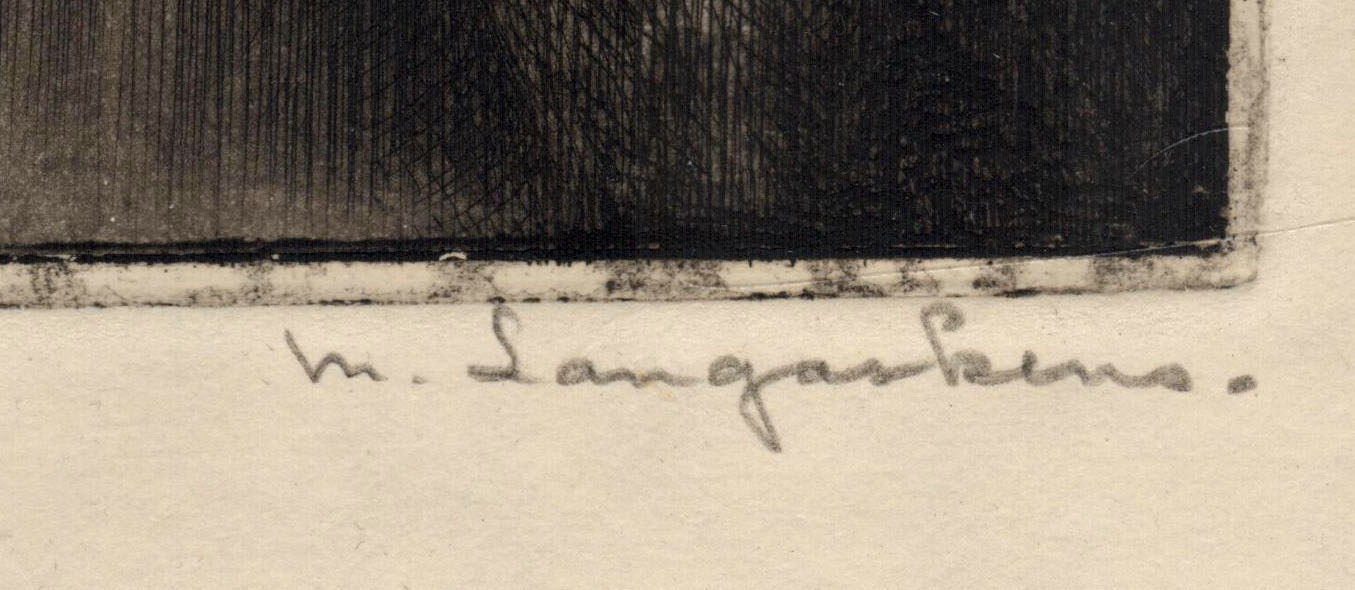 M. Langaskens.